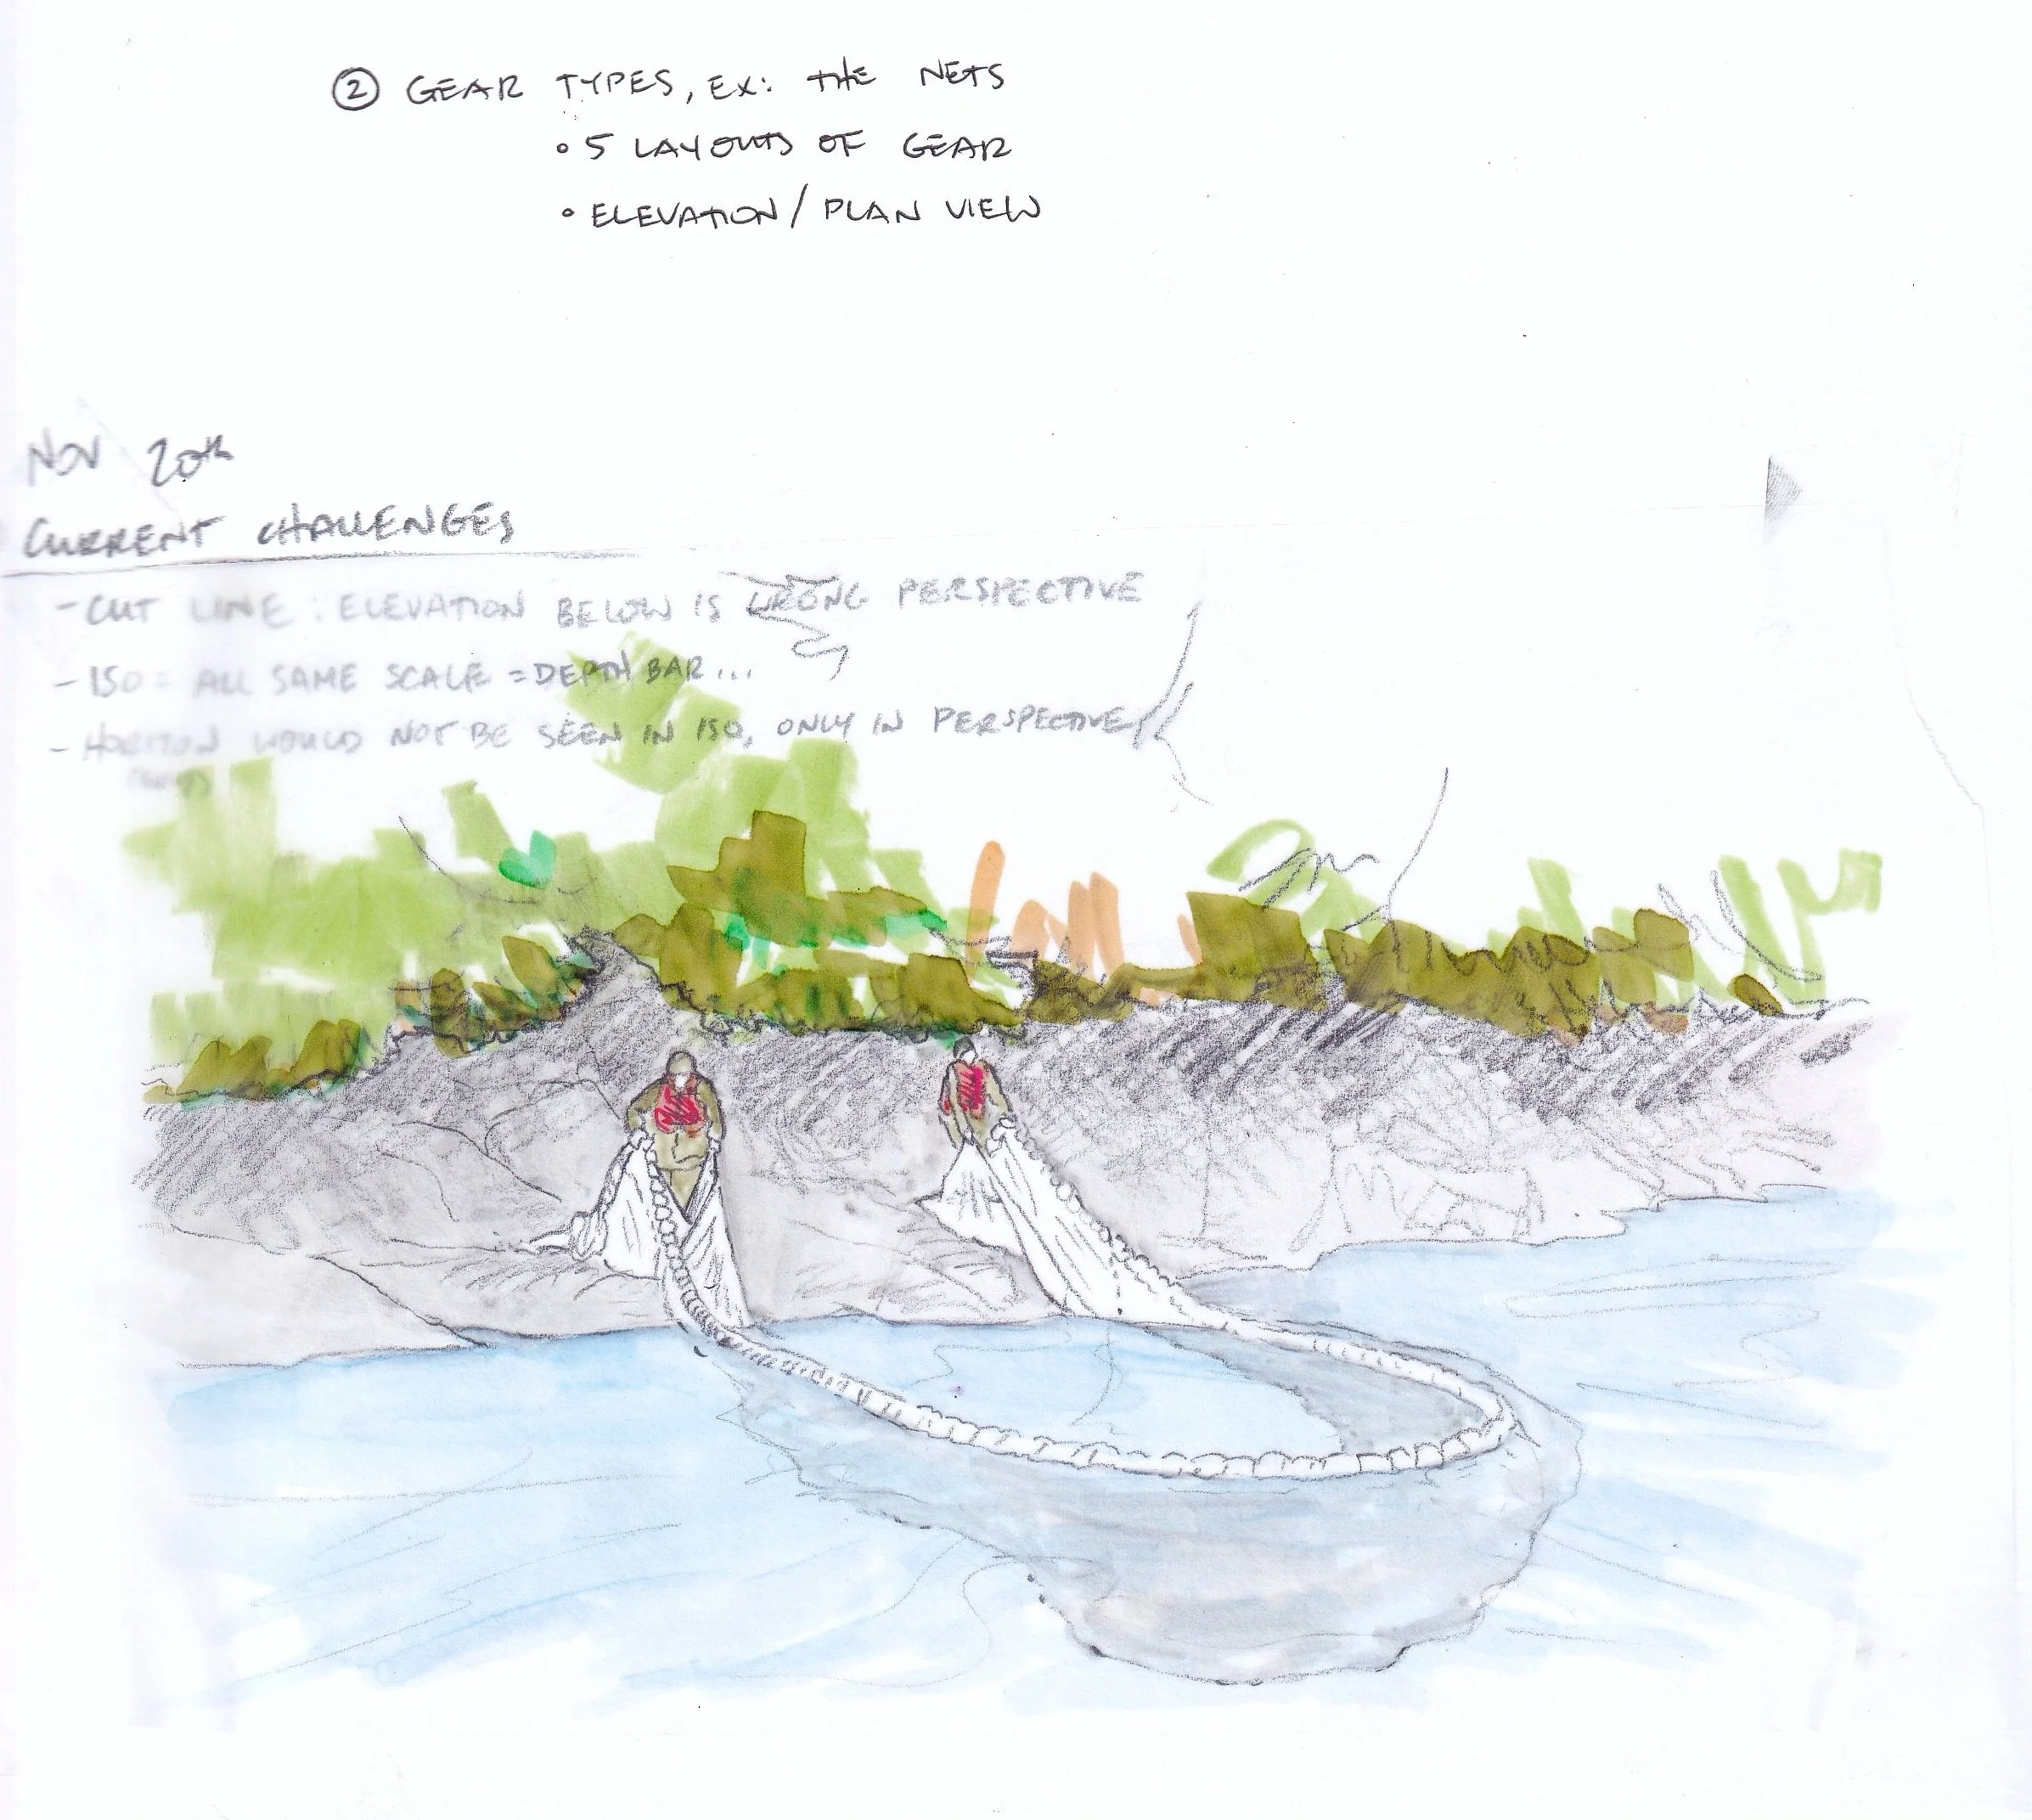 ② GEAR TYPES, EX: THE NETS
• 5 LAYOUTS OF GEAR
• ELEVATION / PLAN VIEW
NOV 20th
CURRENT CHALLENGES
- CUT LINE : ELEVATION BELOW IS WRONG PERSPECTIVE
- ISO = ALL SAME SCALE = DEPTH BAR...
- HORIZON WOULD NOT BE SEEN IN ISO, ONLY IN PERSPECTIVE